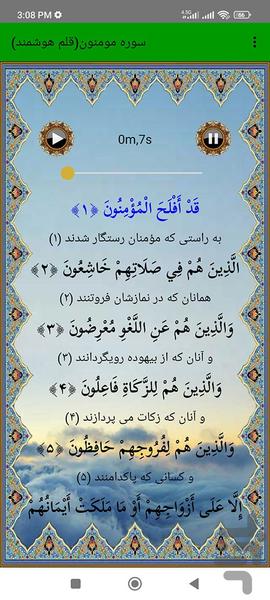 3:08 PM
سوره مومنون(قلم هوشمند)
0m,7s
قَدْ أَفْلَحَ الْمُؤْمِنُونَ ﴿۱﴾
به راستی که مؤمنان رستگار شدند (۱)
الَّذِينَ هُمْ فِي صَلَاتِهِمْ خَاشِعُونَ ﴿۲﴾
همانان که در نمازشان فروتنند (۲)
وَالَّذِينَ هُمْ عَنِ اللَّغْوِ مُعْرِضُونَ ﴿۳﴾
و آنان که از بیهوده رویگردانند (۳)
وَالَّذِينَ هُمْ لِلزَّكَاةِ فَاعِلُونَ ﴿۴﴾
و آنان که زکات می پردازند (۴)
وَالَّذِينَ هُمْ لِفُرُوجِهِمْ حَافِظُونَ ﴿۵﴾
و کسانی که پاکدامنند (۵)
إِلَّا عَلَى أَزْوَاجِهِمْ أَوْ مَا مَلَكَتْ أَيْمَانُهُمْ